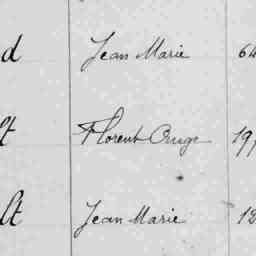 d Jean Marie 64
lt Florent Ange 19
lt Jean Marie 12